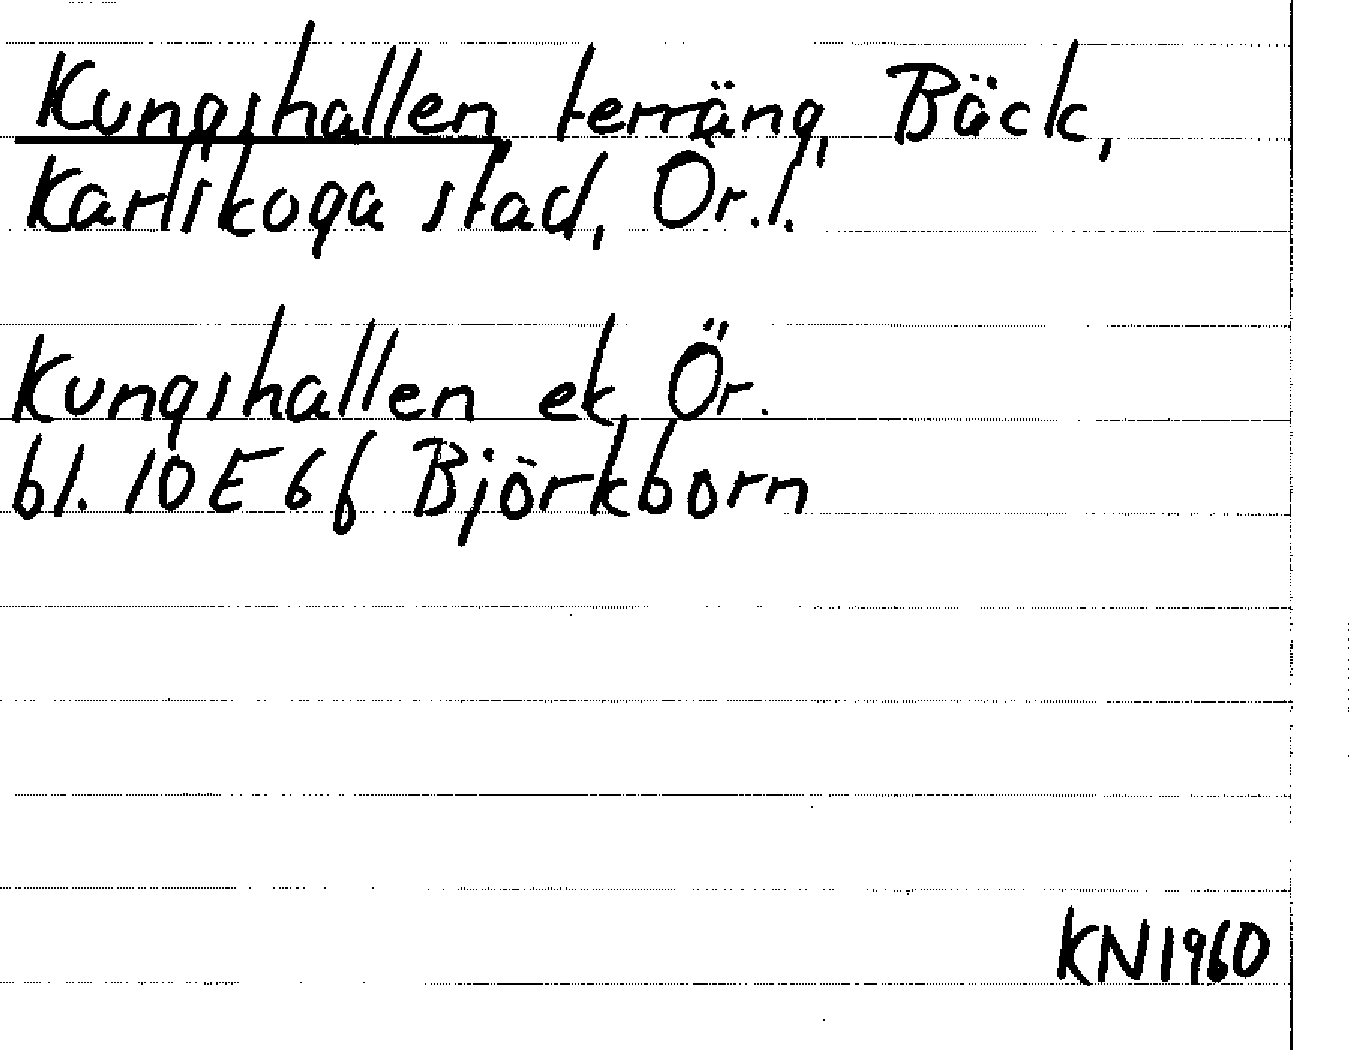 Kungshallen terräng, Bäck,
Karlskoga stad, Ör.l.
Kungshallen ek Ör.
bl. 10E6f Björkborn
KN1960